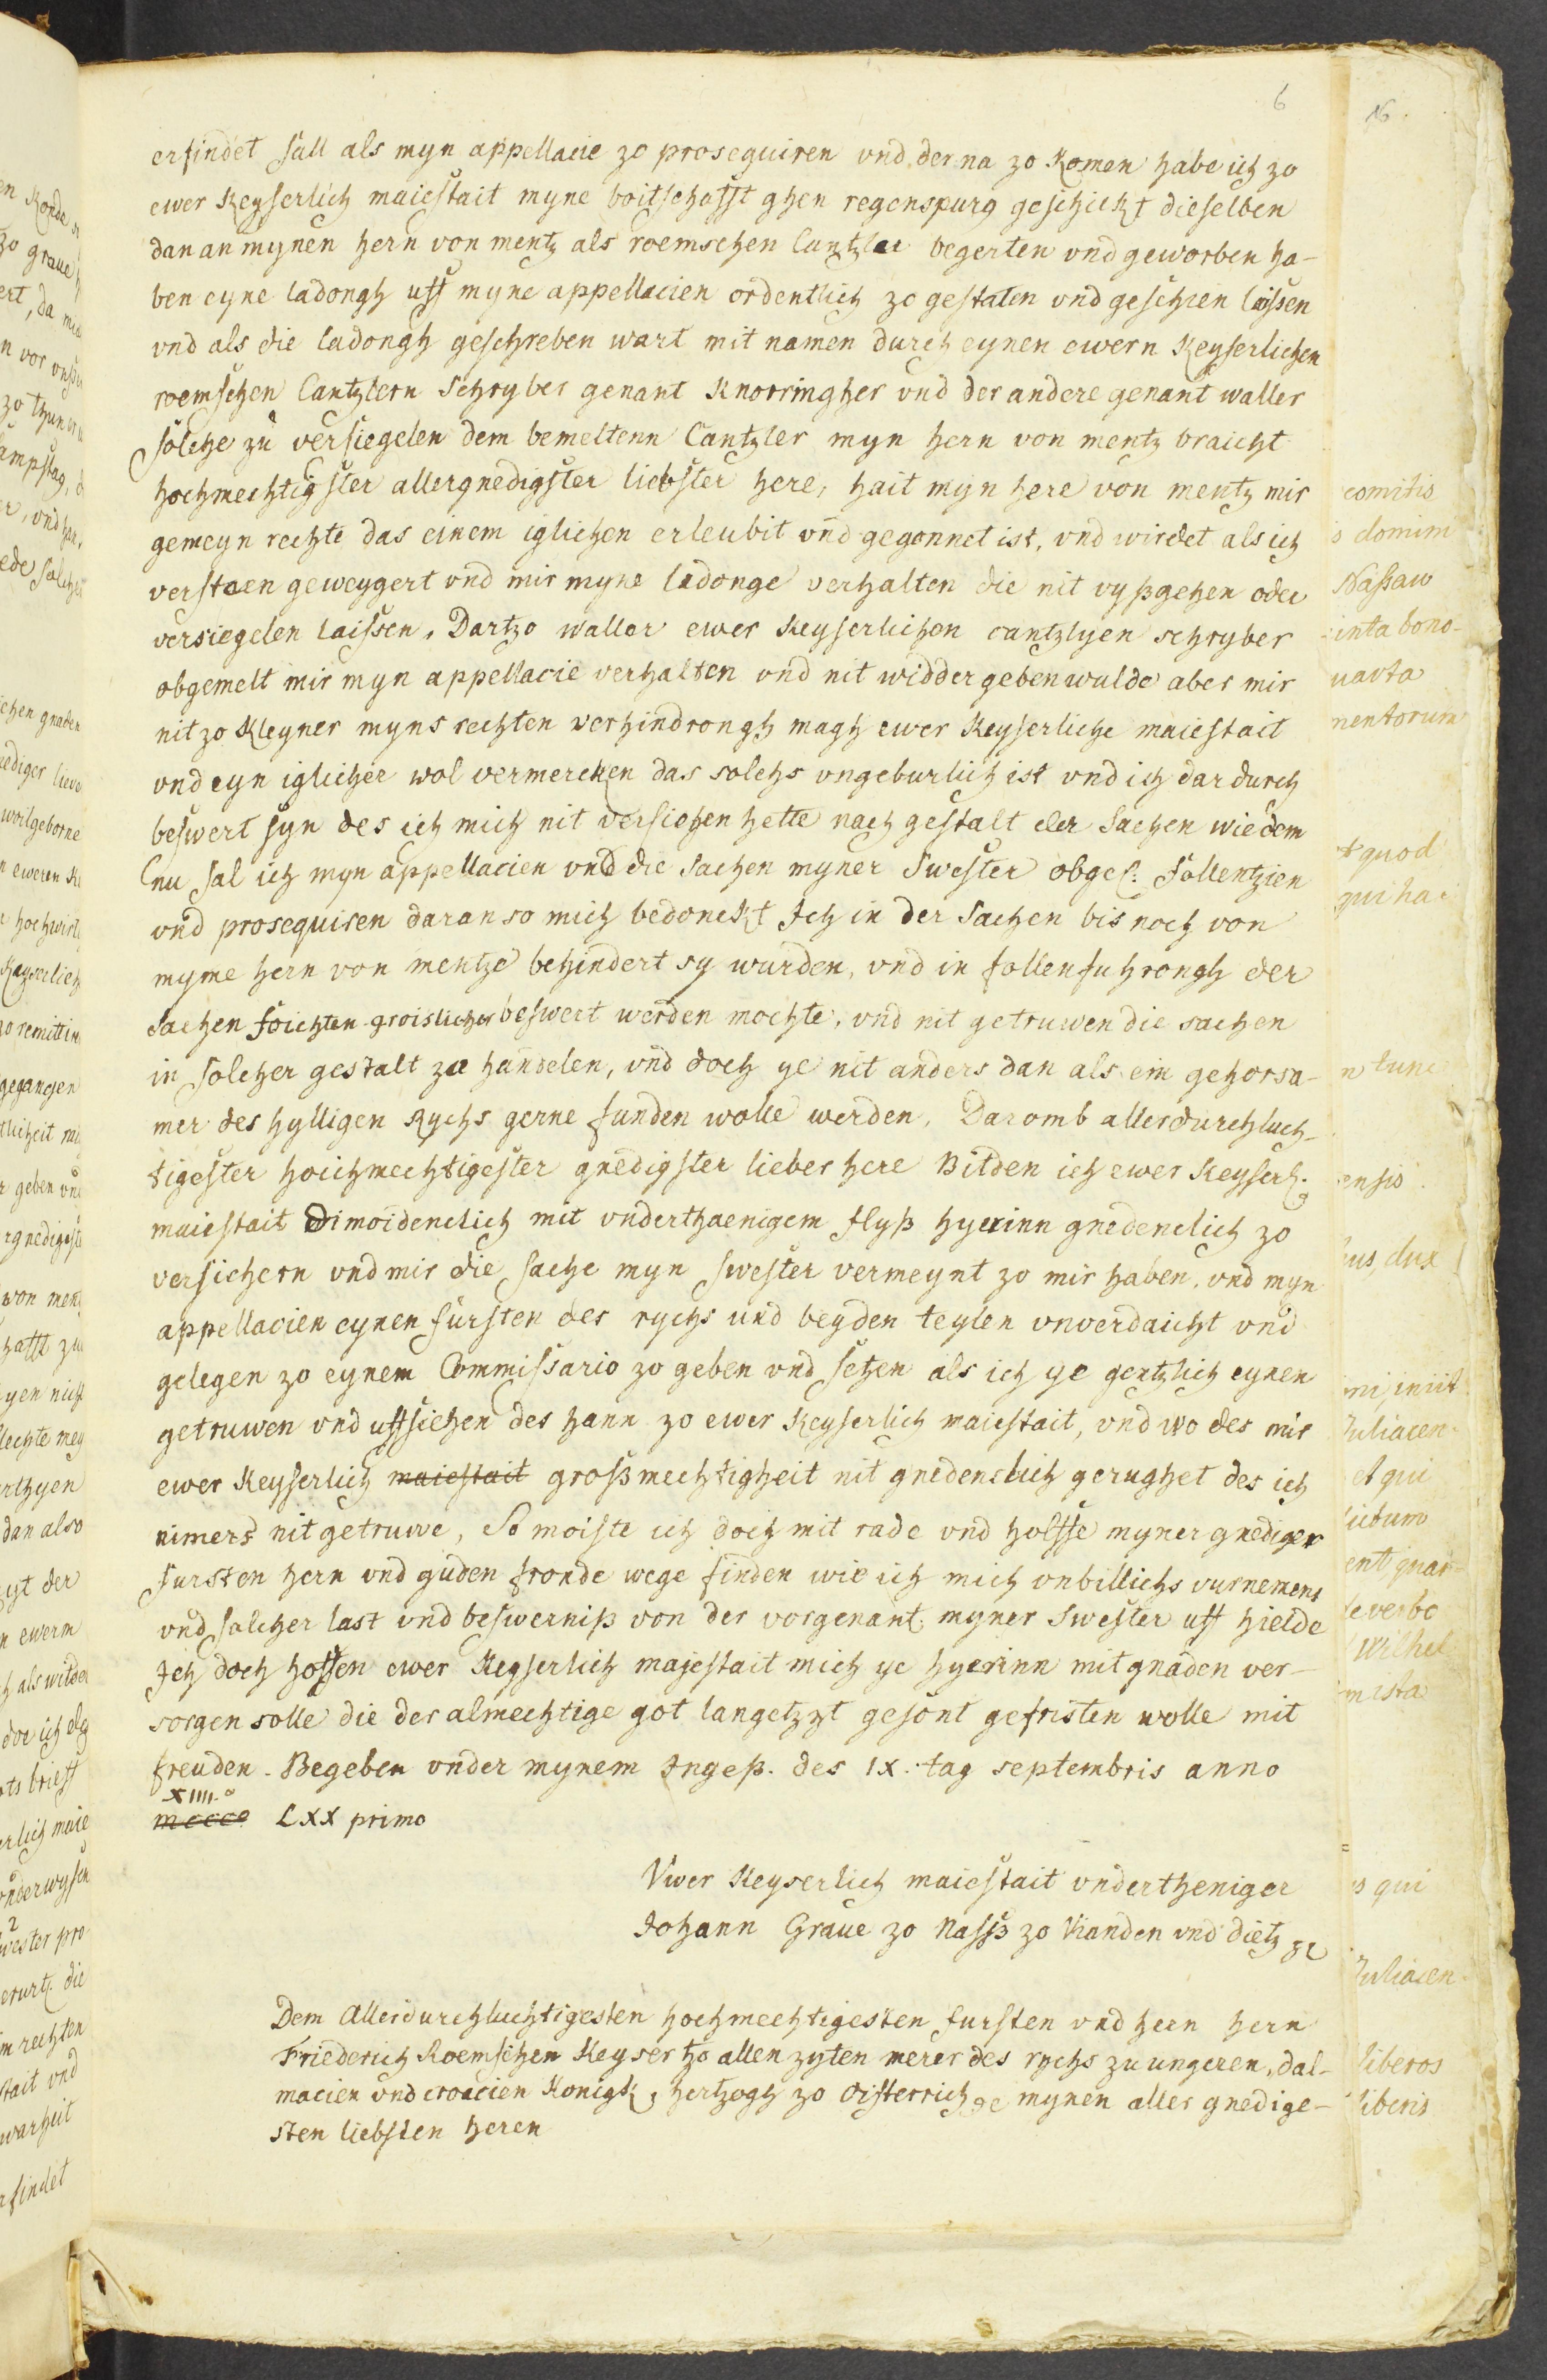 6
erfindet sall als myn appellacie zo prosequiren vnd derna zo komen habe ich zo
ewer keyserlich maiestait myne boitschafft ghen regenspurg geschickt dieselben
dan an mynen hern von mentz als roemschen Cantzler begerten vnd geworben ha-
ben eyne ladongh uff myne appellacien ordentlich zo gestaten vnd geschien laissen
vnd als die ladongh geschreben wart mit namen durch eynen ewern keyserlichen
roemschen Cantzlern schryber genant Knorringher vnd der andere genant waller
solche zu versiegelen dem bemeltenn Cantzler myn hern von mentz braicht
hochmechtigster allergnedigster liebster here, hait myn here von mentz mir
gemeyn rechte das einem iglichen erleubit vnd gegonnet ist, vnd wirdet als ich
verstaen geweygert vnd mir myne ladonge verhalten die nit vyßgehen oder
versiegelen laissen, Dartzo waller ewer keyserlichen cantzlyen schryber
obgemelt mir myn appellacie verhalten vnd nit widdergeben wulde aber mir
nit zo kleyner myns rechten verhindrongh magh ewer keyserliche maiestait
vnd eyn iglicher wol vermercken das solchs vngeburlich ist vnd ich dar durch
beswert syn des ich mich nit versiehen hette nach gestalt der sachen wie dem
nu sal ich myn appellacien vnd die sachen myner swester obges. follentzien
vnd prosequiren daran so mich bedonckt Ich in der sachen bis noch von
myme hern von mentze behindert sy wurden, vnd in follenfuhrongh der
sachen foichten groislicher beswert werden mochte, vnd nit getruwen die sachen
in solcher gestalt zu handelen, vnd doch ye nit anders dan als ein gehorsa-
mer des hylligen Rychs gerne funden wolle werden. Daromb allerdurchluch-
tigester hoichmechtigester gnedigster lieber here Bitden ich ewer keyserl.
maiestait dimoidenclich mit vnderthaenigem flyß hyerinn gnedenclich zo
versichern vnd mir die sache myn swester vermeynt zo mir haben, vnd myn
appellacien eynen fursten des rychs und beyden teylen vnverdaicht vnd
gelegen zo eynem Commissario zo geben vnd setzen als ich ye gentzlich eynen
getruwen vnd uffsiehen des hann zo ewer keyserlich maiestait, vnd wo des mir
ewer keyserlich maiestait großmechtigheit nit gnedenclich gerughet des ich
nimers nit getruwe, So moiste ich doch mit rade vnd holffe myner gnediger
fursten hern vnd guden fronde wege finden wie ich mich vnbillichs vurnemens
vnd solcher last vnd beswerniß von der vorgenant. myner swester uff hielde
Ich doch hoffen ewer keyserlich majestait mich ye hyerinn mit gnaden ver-
sorgen solle die der almechtige got langetzyt gesont gefristen wolle mit
freuden. Begeben vnder mynem Ingeß. des IX. tag septembris anno
XIIII.o
mcccc LXX primo
Vwer keyserlich maiestait vndertheniger
Johann Graue zo Nasß zo Vianden vnd dietz
Dem Allerdurchluchtigesten hochmechtigesten fursten vnd hern hern
Friederich Roemschen keyser tzo allen zyten merer des rychs zu ungeren, dal-
macien vnd croacien konigk, hertzogh zo oisterrich mynen aller gnedige-
sten liebsten heren
16.
comitis
domini
Nassaw
nentorum
quod
tunc
ensis
dux
Juliacen-
et qui
verbo
Wilhel
qui
Juliacen-
liberos
liberis